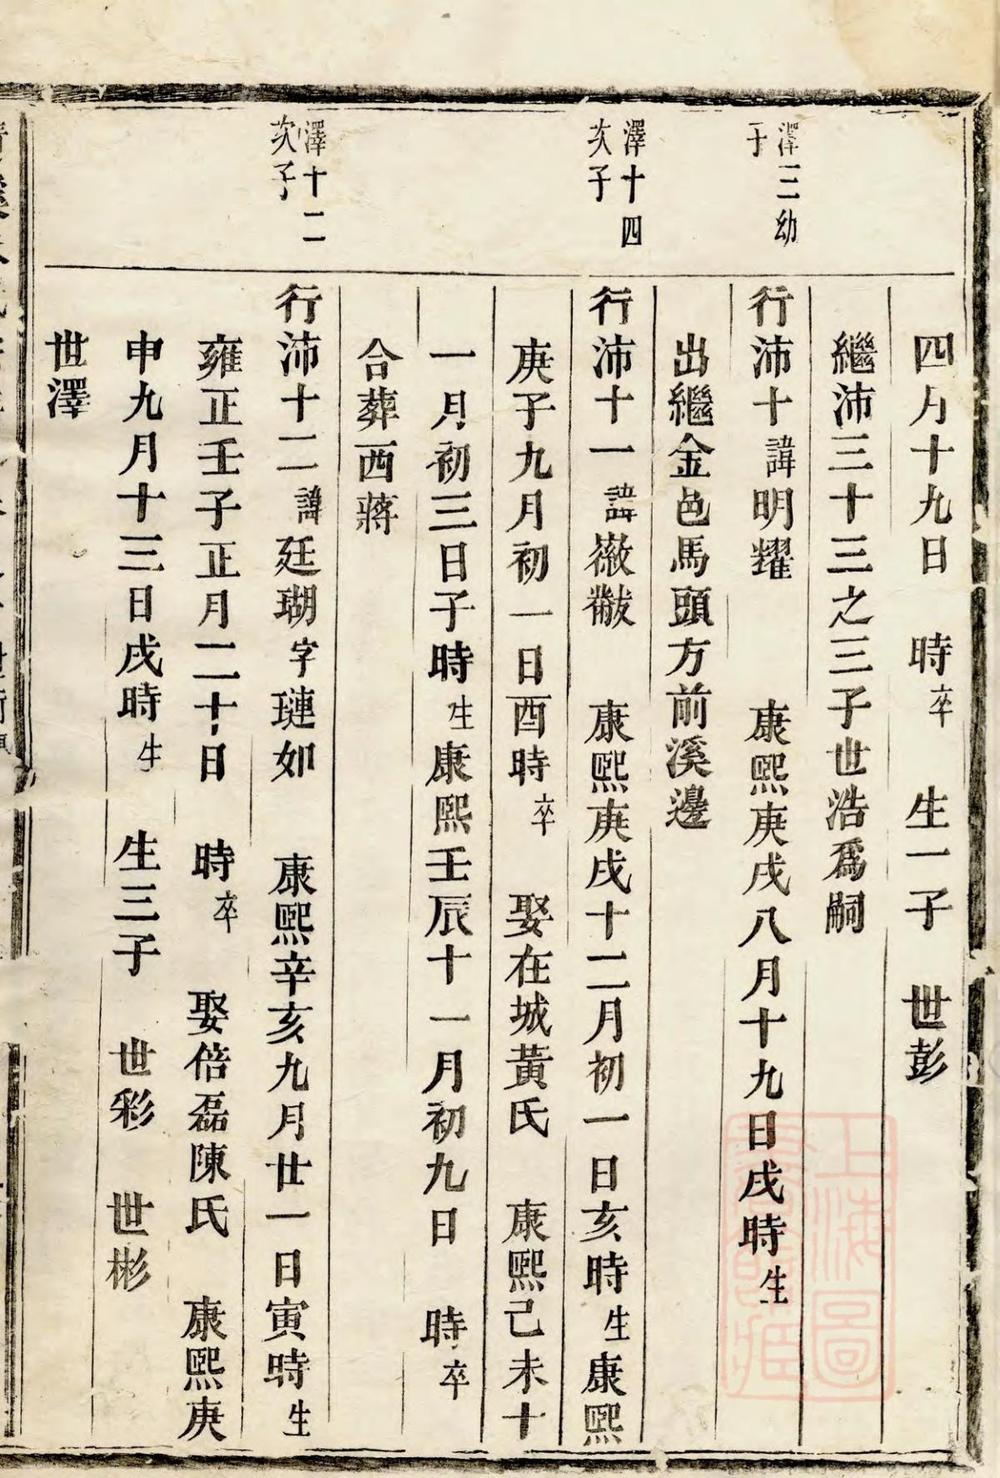 四月十九日　時卒　生一子　世彭
繼沛三十三之三子世浩爲嗣
澤三幼子
行沛十諱明耀　康熙庚戌八月十九日戌時生
出繼金邑馬頭方前溪邊
澤十四次子
行沛十一諱徽黻　康熙庚戌十二月初一日亥時生康熙
庚子九月初一日酉時卒　娶在城黃氏　康熙己未十
一月初三日子時生康熙壬辰十一月初九日　時卒
合葬西蔣
澤十二次子
行沛十二諱廷瑚字璉如　康熙辛亥九月廿一日寅時生
雍正壬子正月二十日　時卒　娶倍磊陳氏　康熙庚
申九月十三日戌時生　生三子　世彩　世彬
世澤
上海圖